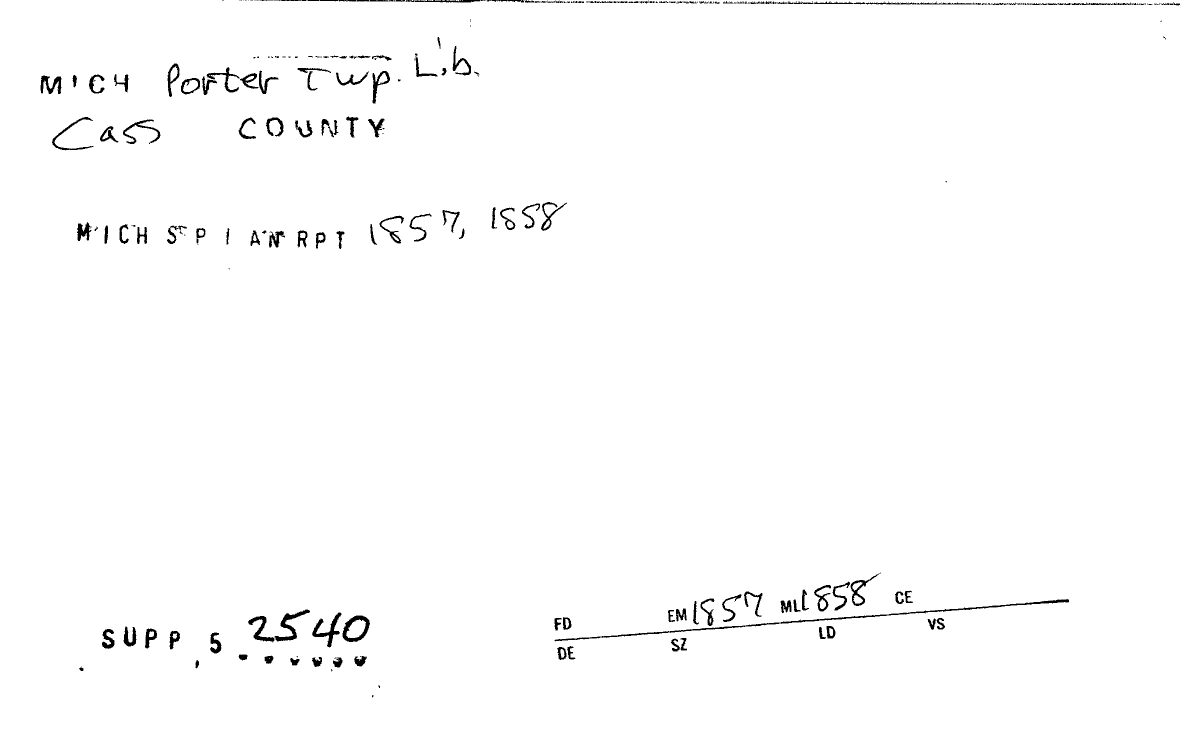 MICH Porter Twp. Lib.
Cass COUNTY
MICH S P I AN RPT 1857, 1858
SUPP 5 2540
FD EM 1857 ML 1858 CE
DE SZ LD VS